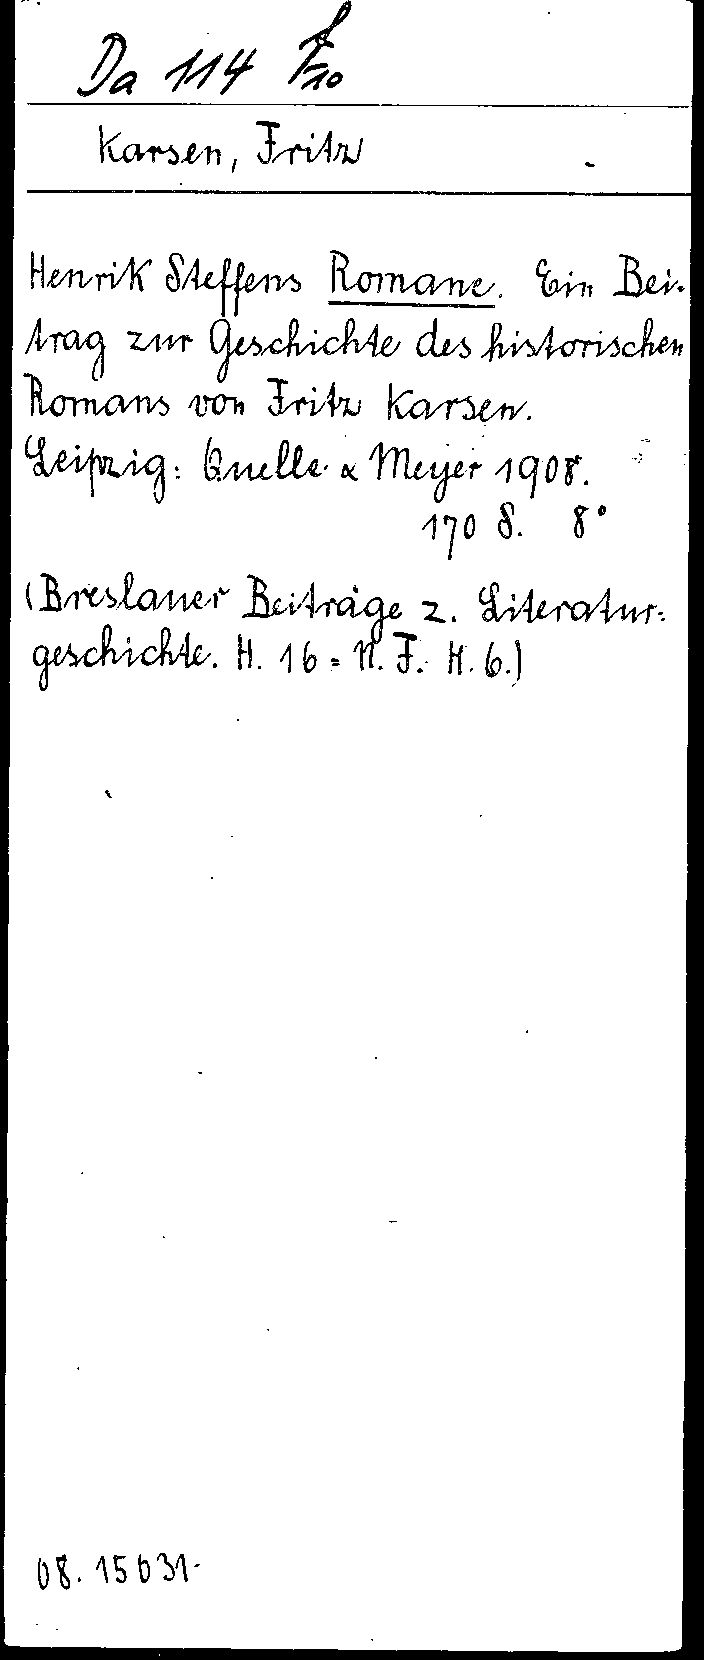 Da 114
Karsen, Fritz
Henrik Steffens Romane. Ein Bei-
trag zur Geschichte des historischen
Romans von Fritz Karsen.
Leipzig: Quelle & Meyer 1908.
170 S. 8°
(Breslauer Beiträge z. Literatur-
geschichte. H. 16 = N. F. H. 6.)
08. 15031.